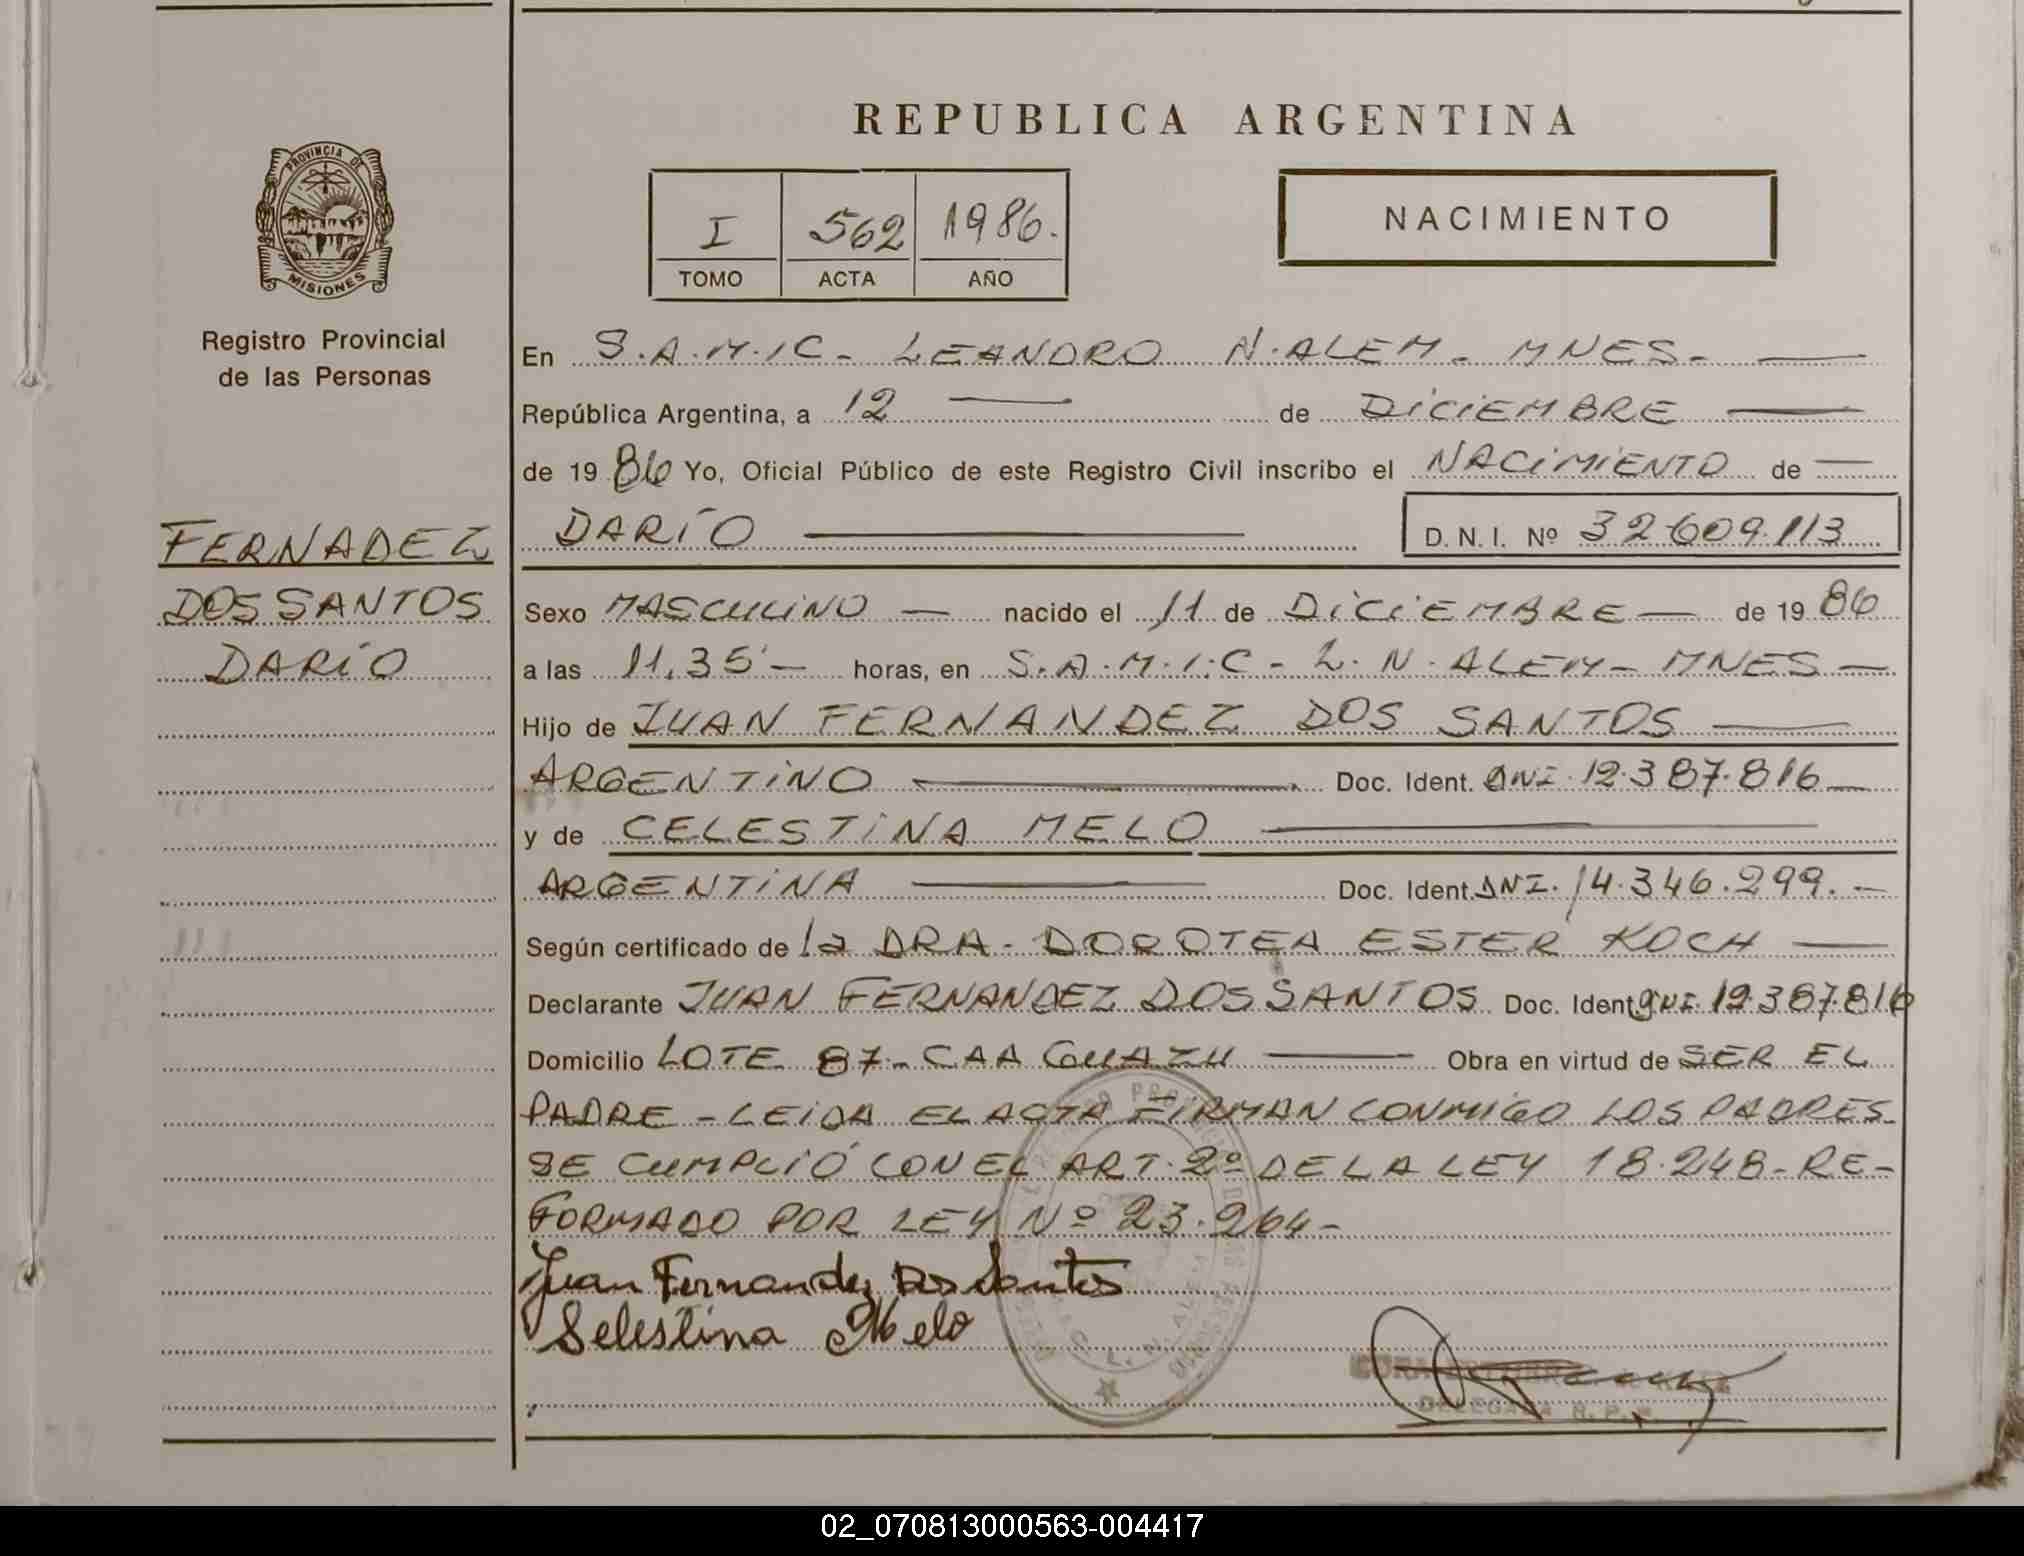 REPUBLICA ARGENTINA
PROVINCIA DE
MISIONES
I 562 1986.
TOMO ACTA AÑO
NACIMIENTO
Registro Provincial
de las Personas
FERNADEZ
DOS SANTOS
DARÍO
En S.A.M.I.C- LEANDRO N. ALEM- MNES-
República Argentina, a 12 de DICIEMBRE
de 1986 Yo, Oficial Público de este Registro Civil inscribo el NACIMIENTO de
DARÍO D. N. I. Nº 32.609.113
Sexo MASCULINO nacido el 11 de DICIEMBRE de 1986
a las 11,35'- horas, en S.A.M.I.C- L.N. ALEM- MNES-
Hijo de JUAN FERNANDEZ DOS SANTOS
ARGENTINO Doc. Ident. DNI. 12.387.816
y de CELESTINA MELO
ARGENTINA Doc. Ident. DNI. 14.346.299.-
Según certificado de la DRA- DOROTEA ESTER KOCH
Declarante JUAN FERNANDEZ DOS SANTOS Doc. Ident. DNI. 12.387.816
Domicilio LOTE 87- CAA GUAZU Obra en virtud de SER EL
PADRE - LEIDA EL ACTA FIRMAN CONMIGO LOS PADRES-
SE CUMPLIÓ CON EL ART. 2º DE LA LEY 18.248- RE-
FORMADO POR LEY Nº 23.264-
Juan Fernandez Dos Santos
Selestina Melo
DELEGADA R. P. P.
02_070813000563-004417